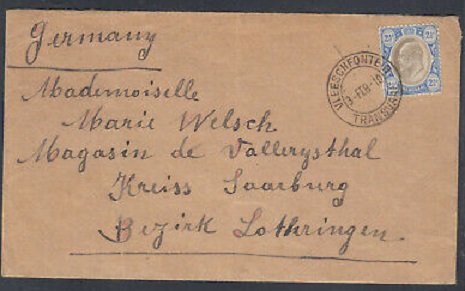 Germany
Mademoiselle
Marie Welsch
Magasin de Vallerysthal
Kreiss Saarburg
Bezirk Lothringen
VLEESCHFONTEIN
FEB 10
TRANSVAAL